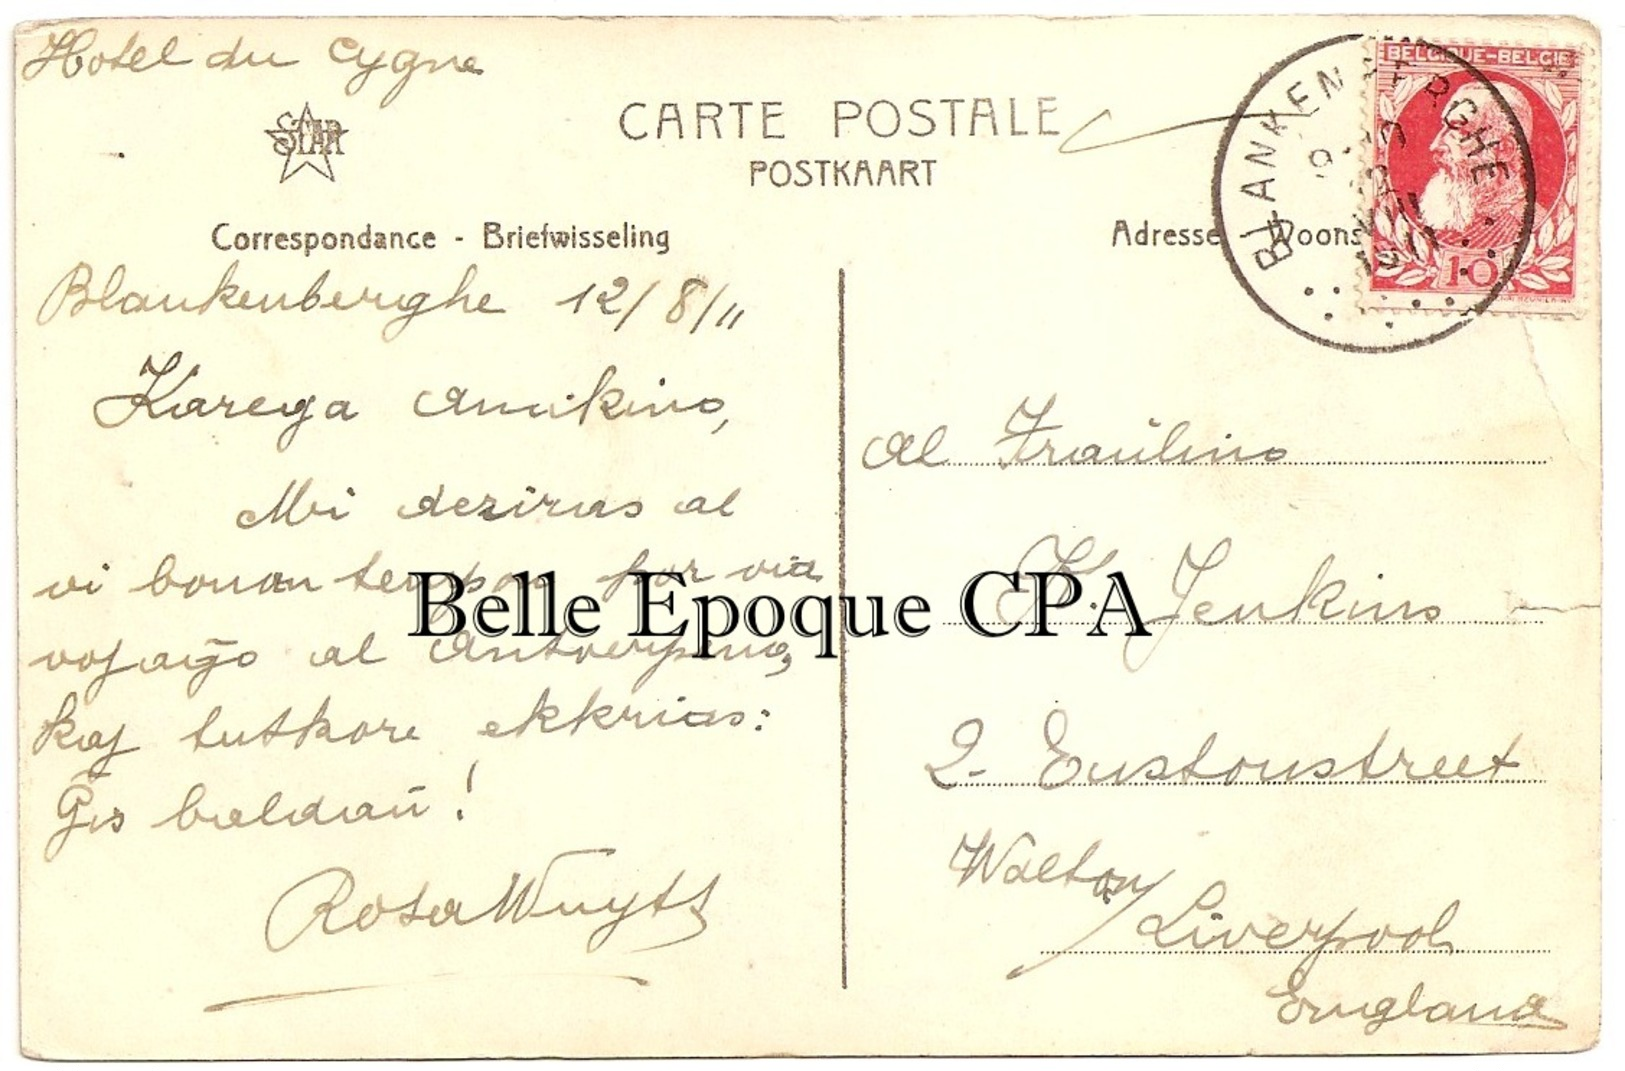 Hotel du Cygne
STAR
CARTE POSTALE
POSTKAART
Correspondance - Briefwisseling
Blankenberghe 12/8/11
Karega amikino,
Mi deziras al
vi bonan tempon por via
vojaĝo al Antverpeno,
kaj tutkore ekkrias:
Ĝis baldaŭ!
Rosa Wuyts
Adresse Woons
BELGIQUE-BELGIË
10
BLANKENBERGHE
Al Fraŭlino
H. Jenkins
2. Eustonstreet
Walton/
Liverpool
England
Belle Epoque CPA